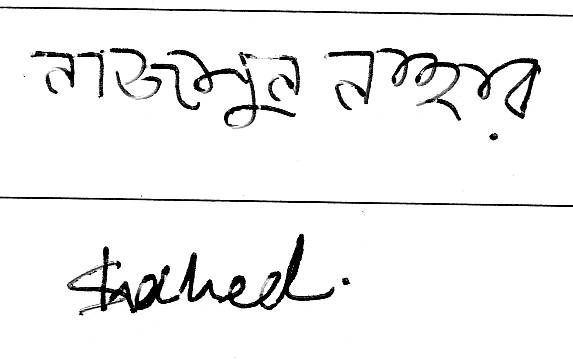 নাজমুন নাহার
Shahed.